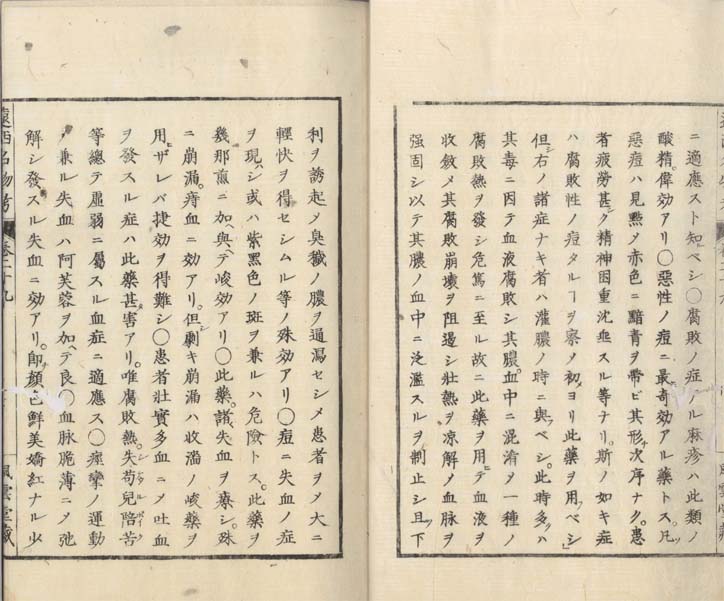 ニ適應スト知ベシ〇腐敗ノ症アル麻疹ハ此類ノ
酸精偉効アリ〇惡性ノ痘ニ最奇効アル藥トス。凡ソ
惡痘ハ見點ノ赤色ニ黯青ヲ帶ビ其形次序ナク。患
者疲勞甚シク精神困重沈垂スル等ナリ。斯ノ如キ症
ハ腐敗性ノ痘タルヿヲ察メ初メヨリ此藥ヲ用フベシ
但シ右ノ諸症ナキ者ハ灌膿ノ時ニ與フベシ。此時多クハ
其毒ニ因テ血液腐敗シ其膿。血中ニ混淆ヲ一種ノ
腐敗熱ヲ發シ危篤ニ至ル故ニ此藥ヲ用ヒテ血液ヲ
收斂メ其腐敗崩壞ヲ阻遏シ壯熱ヲ凉解メ血脉ヲ
强固シ以テ其膿ノ血中ニ泛濫スルヲ制止シ且ツ下
利ヲ誘起メ臭穢ノ膿ヲ通瀉セシメ患者ヲメ大ニ
輕快ヲ得セシムル等ノ殊効アリ〇痘ニ失血ノ症
ヲ現シ或ハ紫黑色ノ斑ヲ兼ルハ危險トス。此藥ヲ
幾那煎ニ加ヘ與ヘテ峻効アリ〇此藥。諸失血ヲ療シ。殊
ニ崩漏。痔血ニ効アリ。但シ劇キ崩漏ハ收濇ノ峻藥ヲ
用ヒザレバ捷効ヲ得難シ〇患者壯實多血ニメ吐血
ヲ發スル症ハ此藥甚ダ害アリ。唯腐敗熱。失苟兒陪苦
等總テ虛弱ニ屬スル血症ニ適應ス〇痙攣ノ運動
ヲ兼ル失血ハ阿芙蓉ヲ加ヘテ良〇血脉脆薄ニメ弛
解シ發スル失血ニ効アリ。即チ顔色鮮美嬌紅ナル少
遠西名物考
卷二十九
風雲堂藏